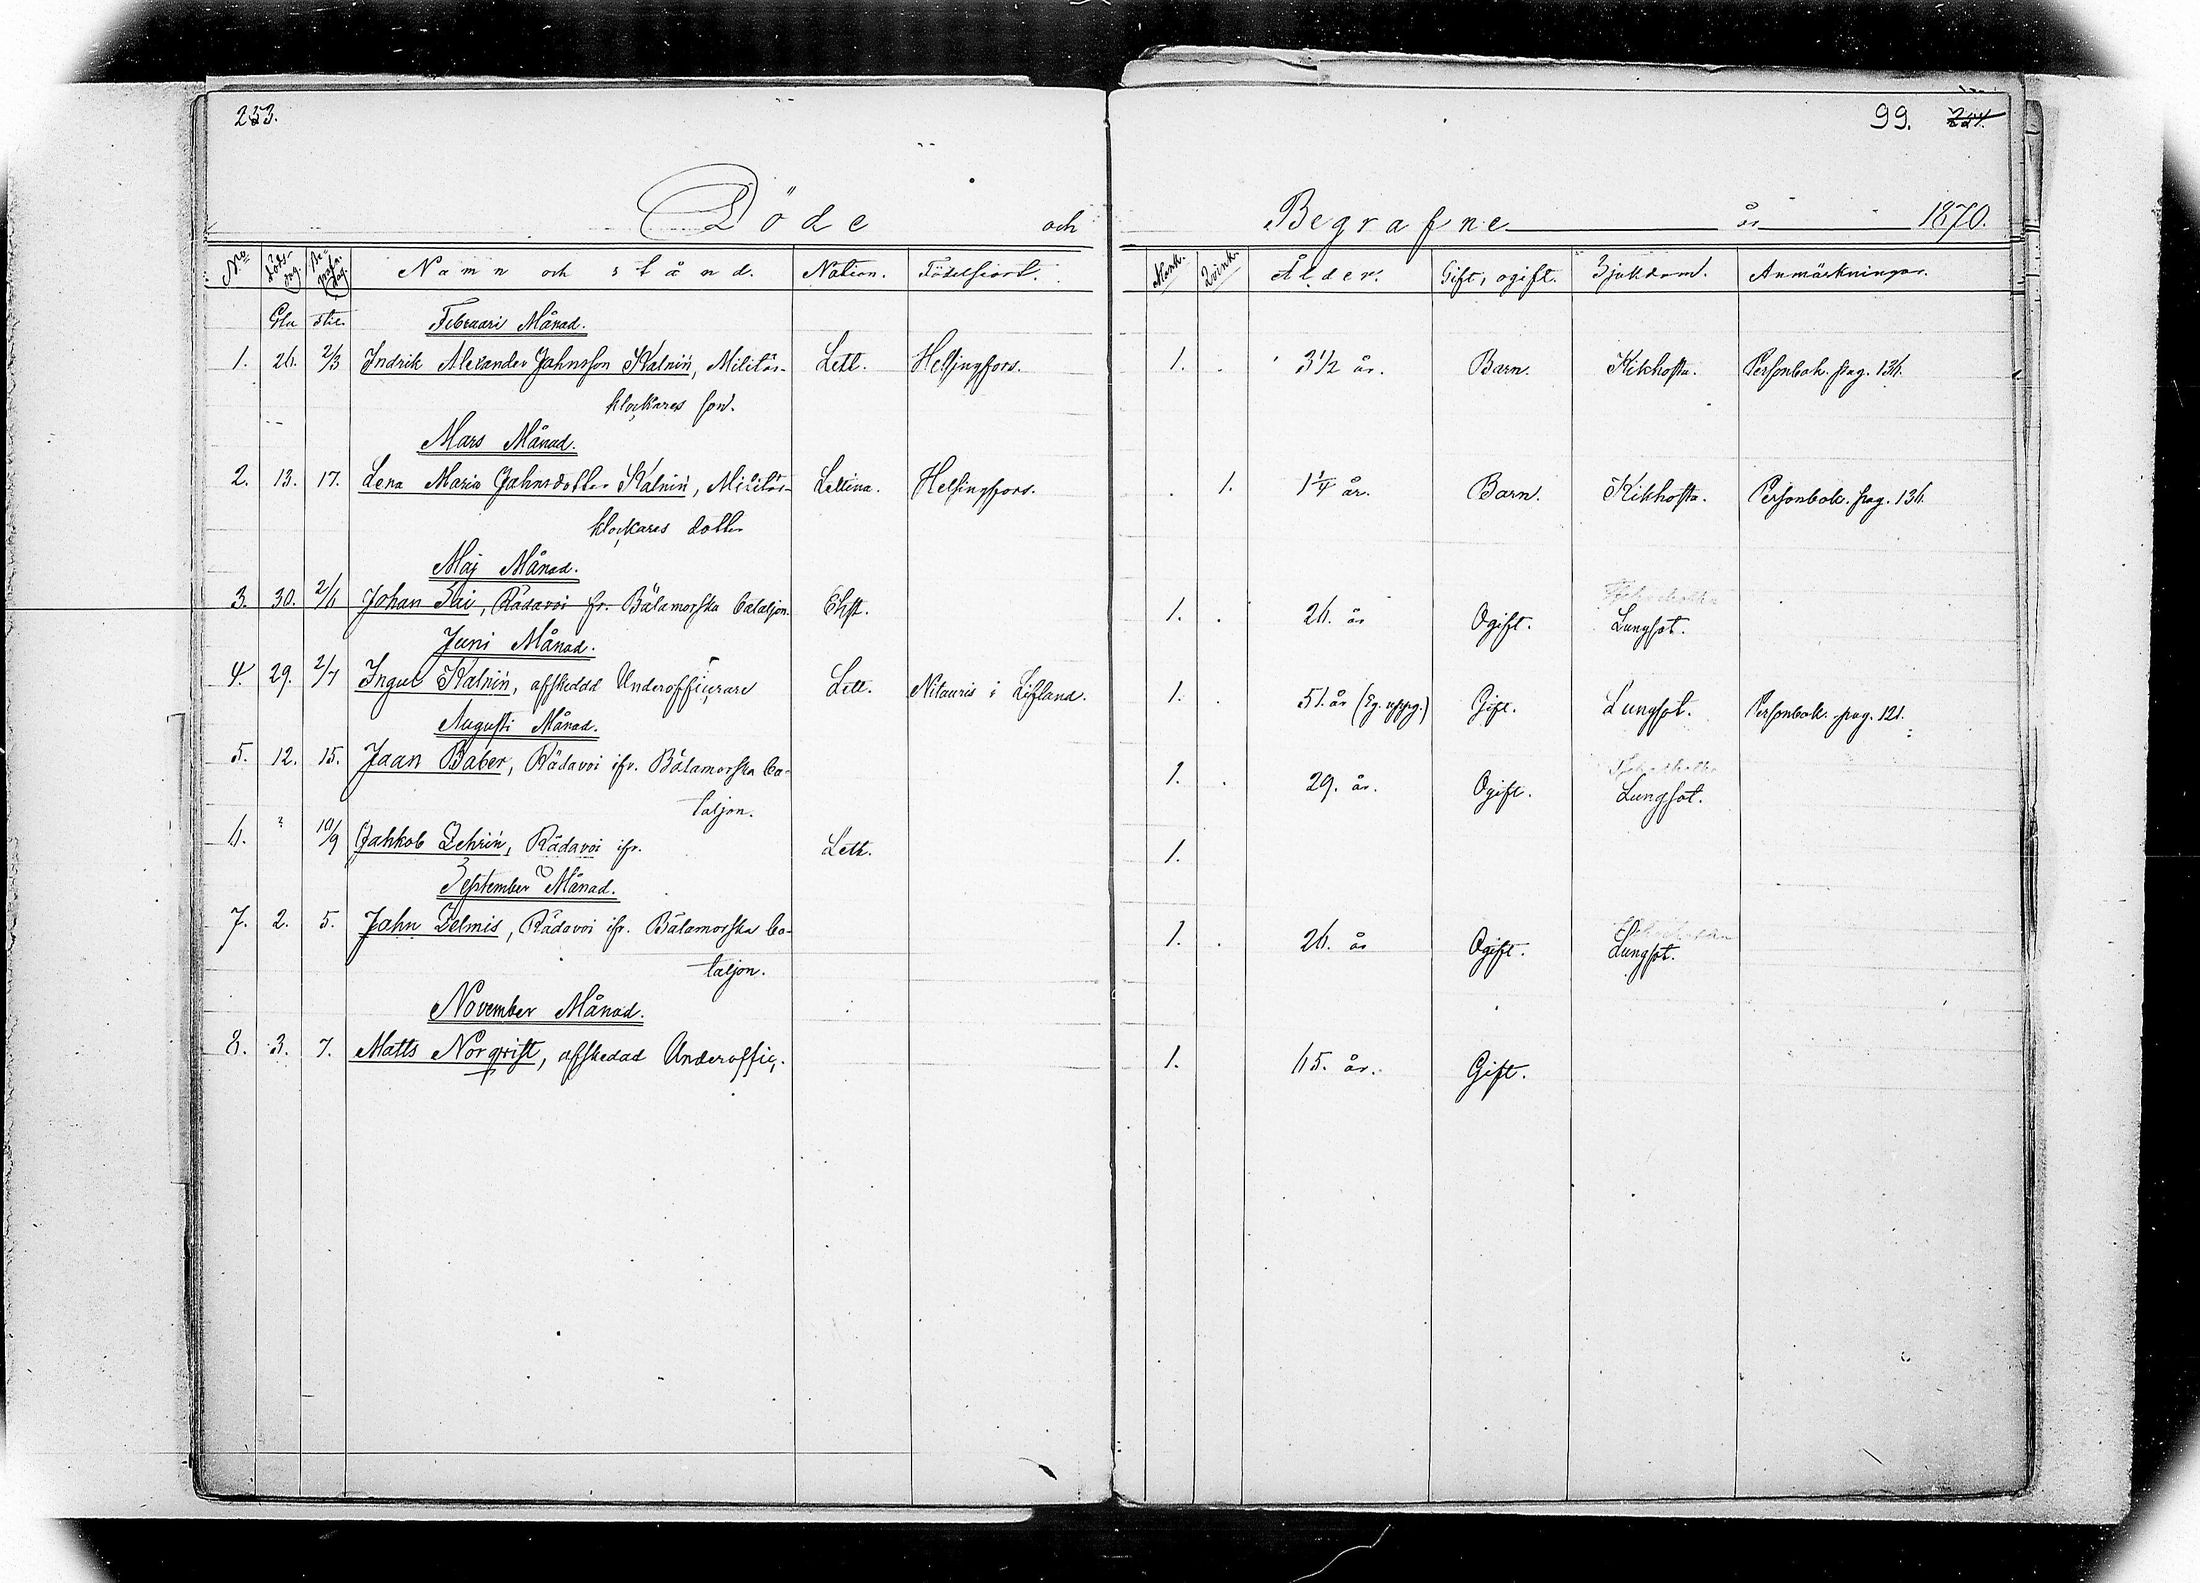 253.
99. 254.
Döde och Begrafne år 1870.
No Döds-dag. Be-grafn. dag. Namn och stånd. Nation. Födelseort. Mank. Qvink. Ålder. Gift, ogift. Sjukdom. Anmärkningar.
Gla stil. Februari Månad.
1. 26. 2/3 Indrik Alexander Jahnsson Kalniń, Militär- Lett. Helsingfors. 1. . 3 1/2 år. Barn. Kikhosta. Personbok. pag. 136.
klockares son.
Mars Månad.
2. 13. 17. Lena Maria Jahnsdotter Kalniń, Militär- Lettina. Helsingfors. . 1. 1 1/4 år. Barn. Kikhosta. Personbok. pag. 136
klockares dotter
Maj Månad.
3. 30. 2/6 Johan Sai, Rädavoi fr. Bälamorska bataljon. Ehst. 1. . 26. år Ogift. Lungsot.
Juni Månad.
4. 29. 2/7 Ingul Kalniń, afskedad Underofficerare Lett. Nitauris i Lifland. 1. . 51. år (Eg. uppg.) Gift. Lungsot. Personbok. pag. 121.
Augusti Månad.
5. 12. 15. Jaan Baber, Rädavoi ifr. Bälamorska ba- 1. . 29. år. Ogift. Lungsot.
taljon.
6. ? 10/9 Jahkob Zehriń, Rädavoi ifr. Lett. 1.
September Månad.
7. 2. 5. Jahn Zelmis, Rädavoi ifr. Bälamorska ba- 1. . 26. år Ogift. Lungsot.
taljon.
November Månad.
8. 3. 7. Matts Norqvist, afskedad Underoffic. 1. 65. år. Gift.